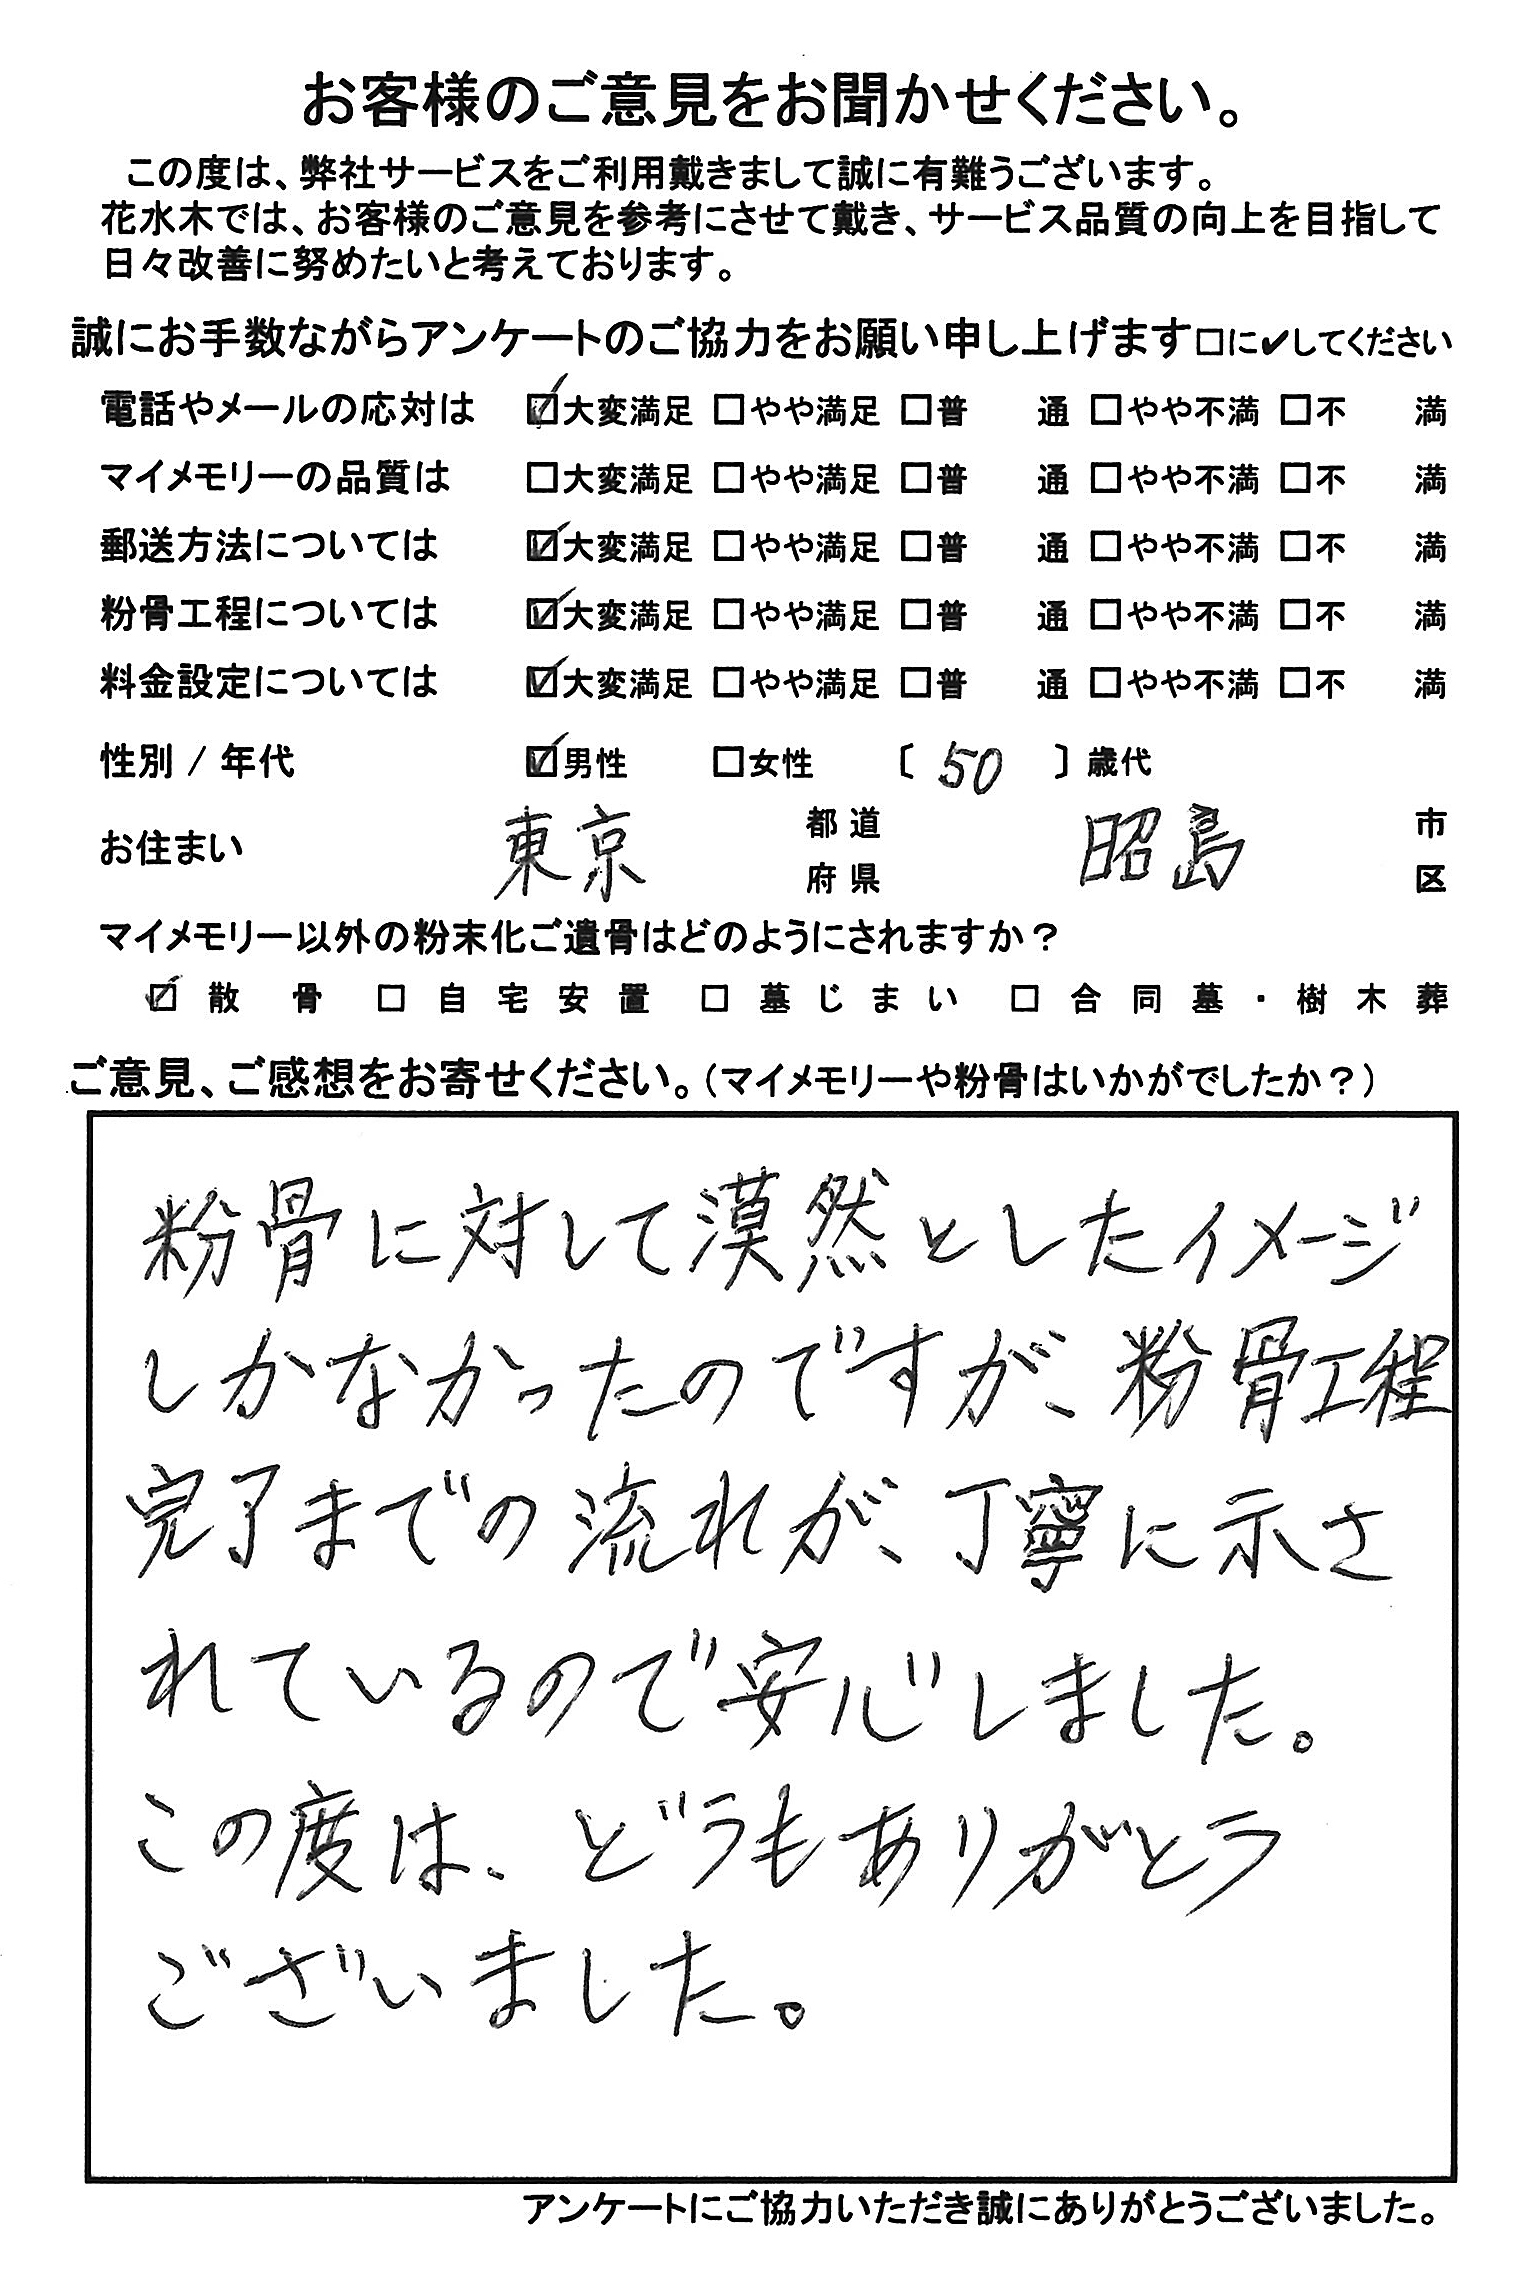 お客様のご意見をお聞かせください。
この度は、弊社サービスをご利用戴きまして誠に有難うございます。
花水木では、お客様のご意見を参考にさせて戴き、サービス品質の向上を目指して
日々改善に努めたいと考えております。
誠にお手数ながらアンケートのご協力をお願い申し上げます□に✔してください
電話やメールの応対は ☑大変満足 □やや満足 □普 通 □やや不満 □不 満
マイメモリーの品質は □大変満足 □やや満足 □普 通 □やや不満 □不 満
郵送方法については ☑大変満足 □やや満足 □普 通 □やや不満 □不 満
粉骨工程については ☑大変満足 □やや満足 □普 通 □やや不満 □不 満
料金設定については ☑大変満足 □やや満足 □普 通 □やや不満 □不 満
性別 / 年代 ☑男性 □女性 〔 50 〕歳代
お住まい 東京 都道府県 昭島 市区
マイメモリー以外の粉末化ご遺骨はどのようにされますか？
☑ 散骨 □ 自宅安置 □ 墓じまい □ 合同墓・樹木葬
ご意見、ご感想をお寄せください。（マイメモリーや粉骨はいかがでしたか？）
粉骨に対して漠然としたイメージ
しかなかったのですが、粉骨工程
完了までの流れが、丁寧に示さ
れているので安心しました。
この度は、どうもありがとう
ございました。
アンケートにご協力いただき誠にありがとうございました。